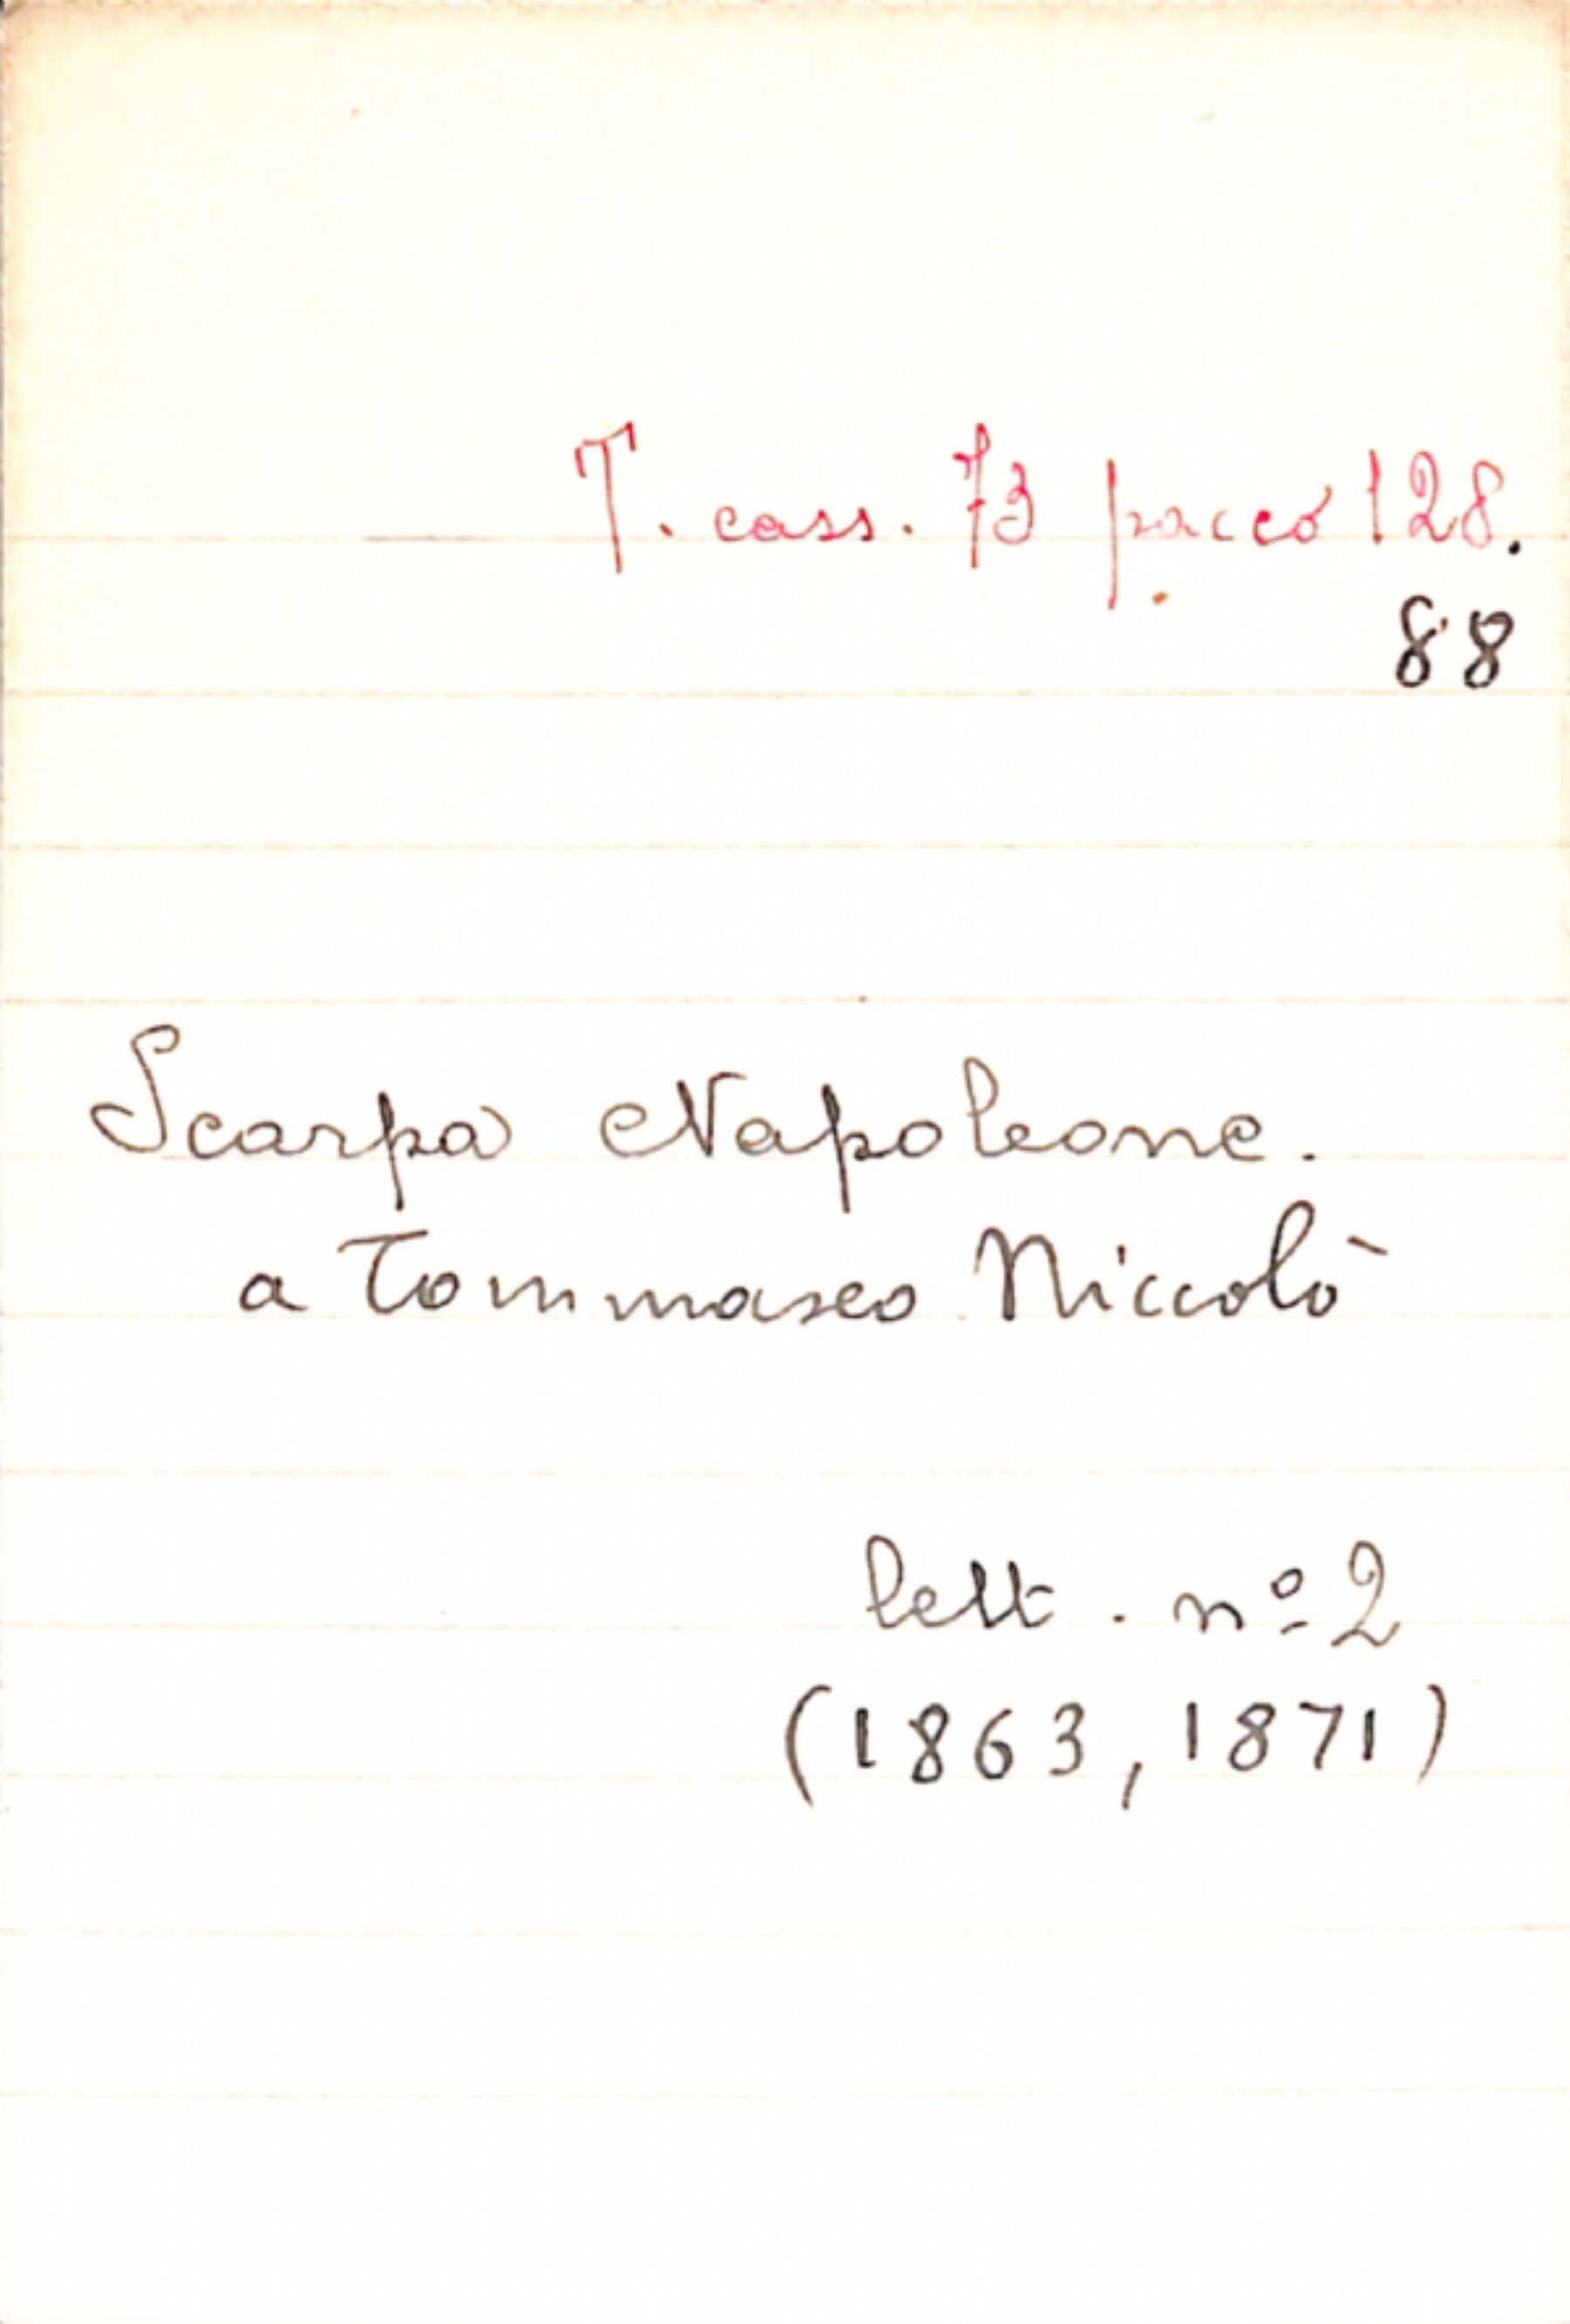 T. cass. 73 pacco 128.
88
Scarpa Napoleone.
a Tommaseo Niccolò
lett. nº 2
(1863, 1871)